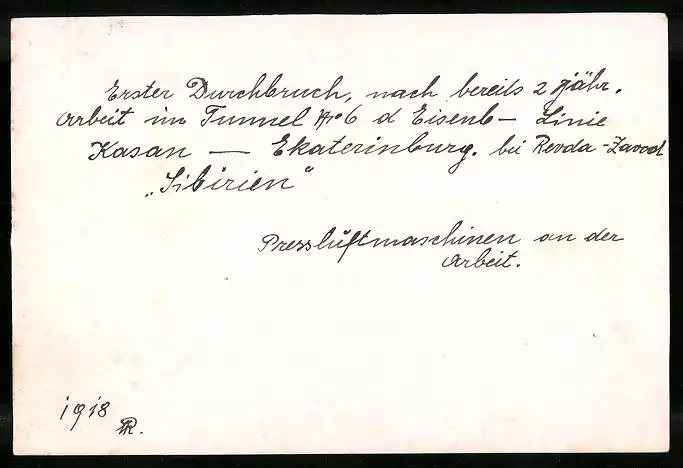 Erster Durchbruch, nach bereits 2 jähr.
Arbeit im Tunnel No 6 d Eisenb- Linie
Kasan — Ekaterinburg. bei Revda-Zavod
„Sibirien"
Pressluftmaschinen an der
Arbeit.
1918
R.